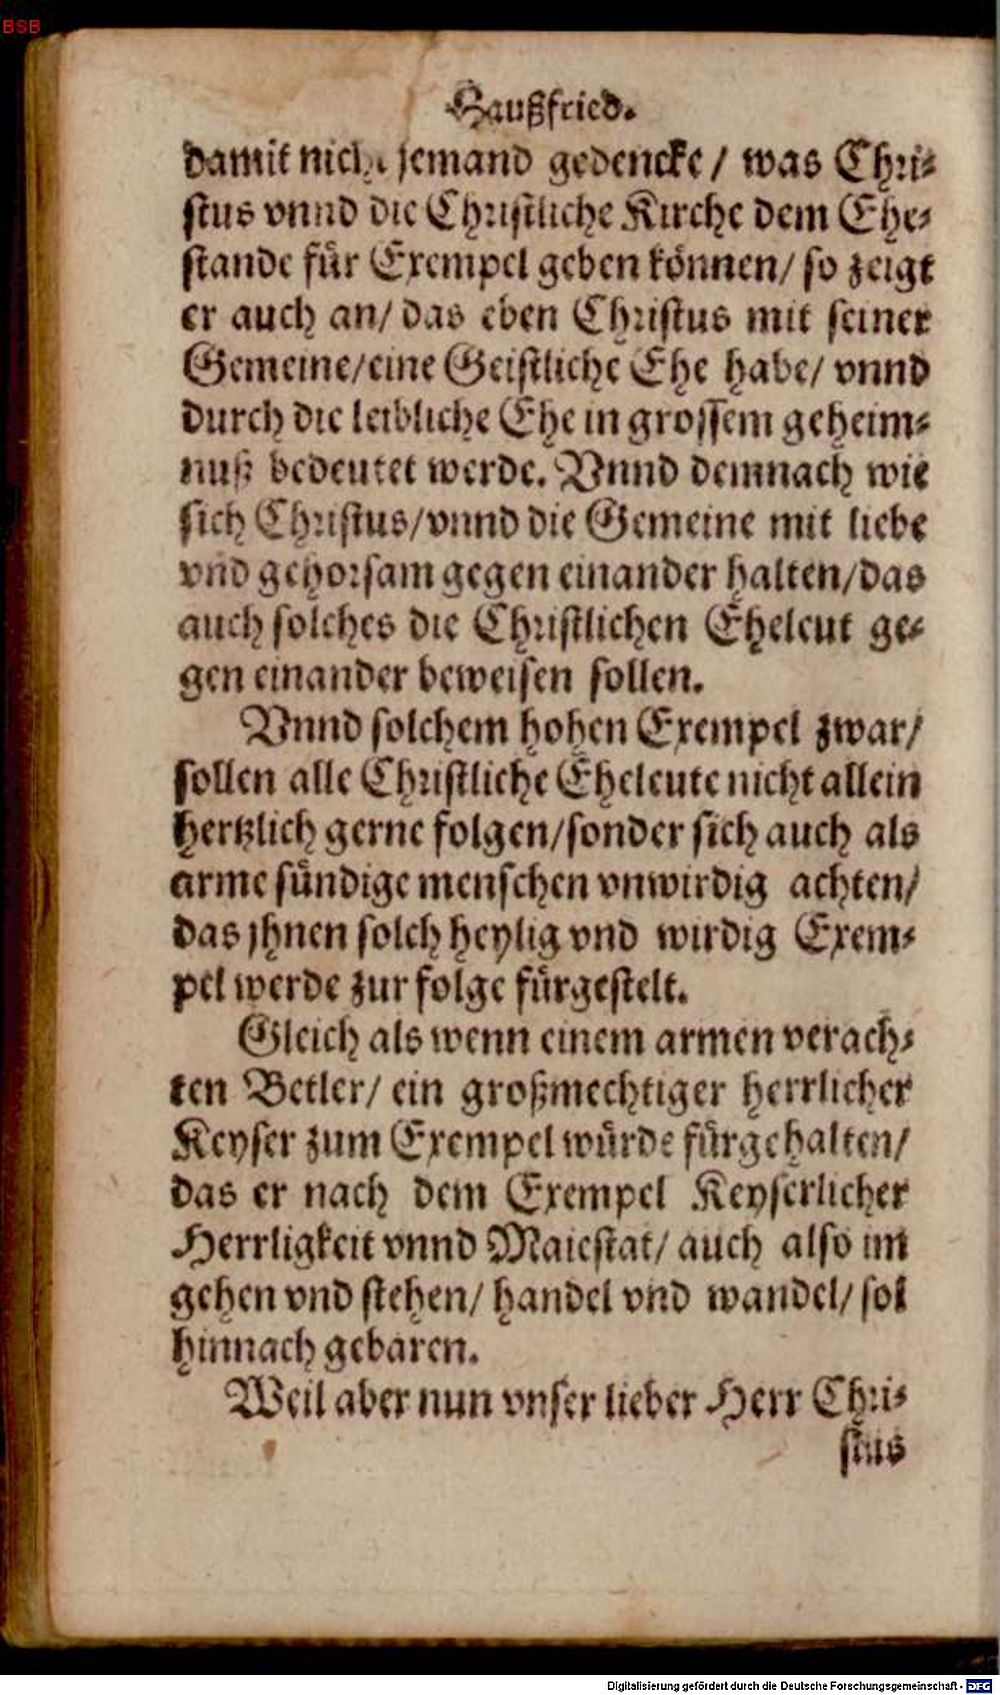 BSB
Haußfried.
damit nicht jemand gedencke / was Chri-
stus vnnd die Christliche Kirche dem Ehe-
stande für Exempel geben können / so zeigt
er auch an / das eben Christus mit seiner
Gemeine / eine Geistliche Ehe habe / vnnd
durch die leibliche Ehe in grossem geheim-
nuß bedeutet werde. Vnnd demnach wie
sich Christus / vnnd die Gemeine mit liebe
vnd gehorsam gegen einander halten / das
auch solches die Christlichen Eheleut ge-
gen einander beweisen sollen.
Vnnd solchem hohen Exempel zwar /
sollen alle Christliche Eheleute nicht allein
hertzlich gerne folgen / sonder sich auch als
arme sündige menschen vnwirdig achten /
das jhnen solch heylig vnd wirdig Exem-
pel werde zur folge fürgestelt.
Gleich als wenn einem armen verach-
ten Betler / ein großmechtiger herrlicher
Keyser zum Exempel würde fürgehalten /
das er nach dem Exempel Keyserlicher
Herrligkeit vnnd Maiestat / auch also im
gehen vnd stehen / handel vnd wandel / sol
hinnach gebaren.
Weil aber nun vnser lieber Herr Chri-
stus
Digitalisierung gefördert durch die Deutsche Forschungsgemeinschaft - DFG